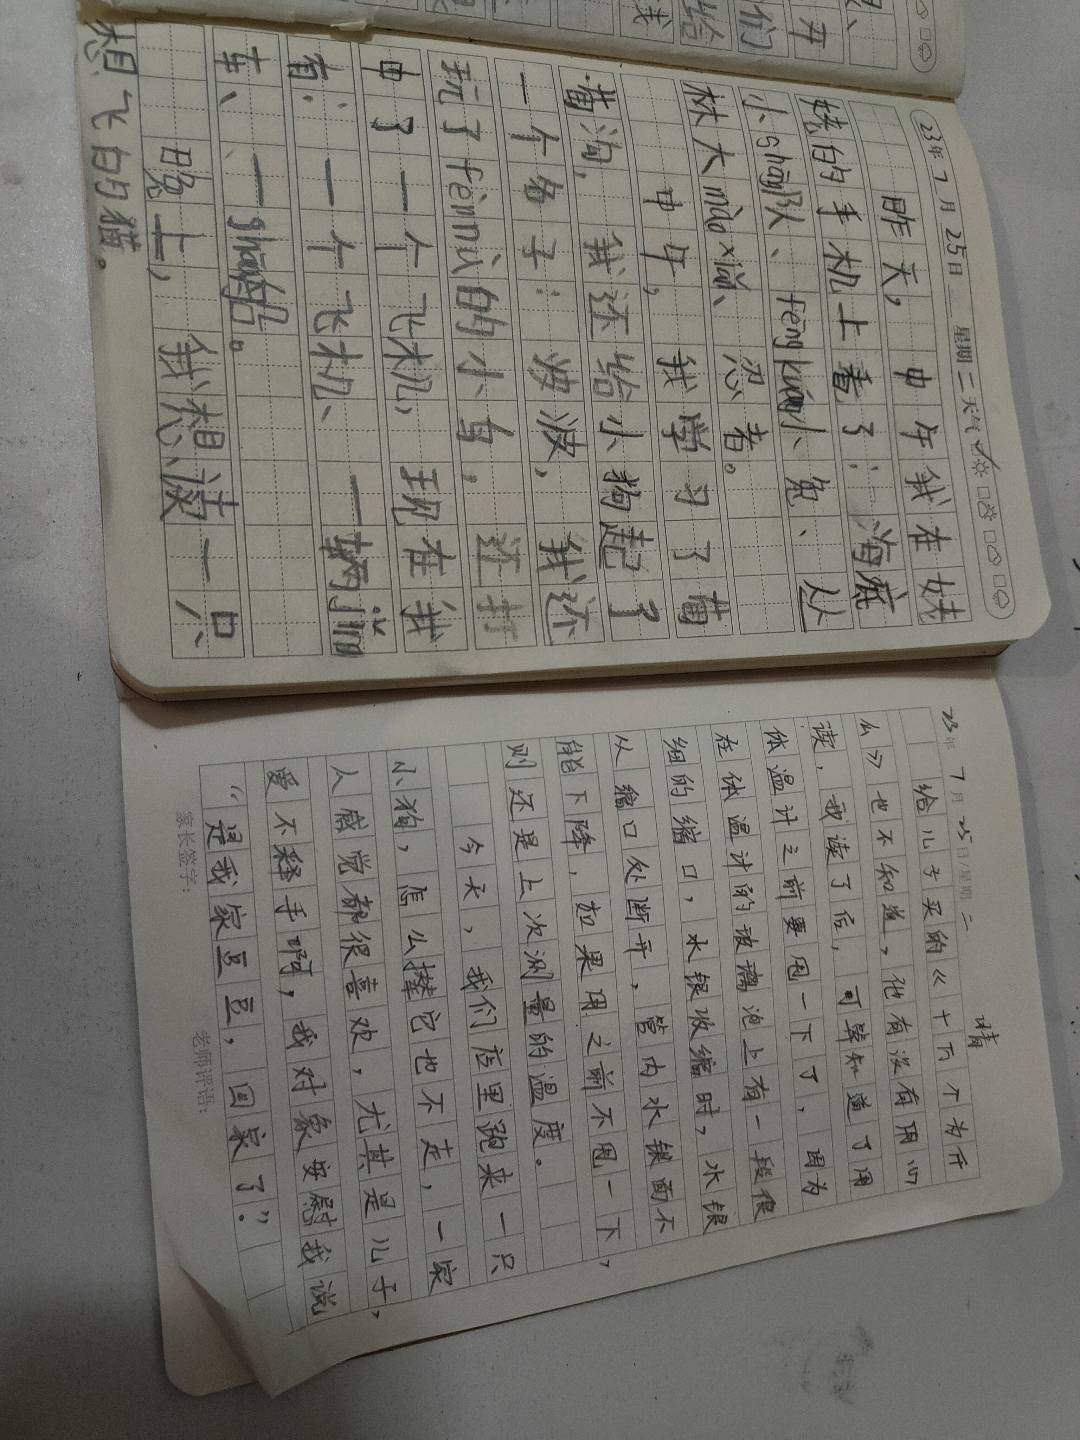 23年7月25日 星期二 天气
昨天，中午我在妹
妹的手机上看了：海底
小shāo队、fēngkuáng小兔、从
林大mào xiǎn、忍者。
中午，我学习了葡
萄沟，我还给小狗起了
一个名子：妙波，我还
玩了fèinù的小鸟，还打
中了一个飞机，现在我
有：一个飞机、一辆jǐng
车、一shāo船。
晚上，我想读一只
想飞的猫。
23年7月25日 星期二 晴
给儿子买的《十万个为什
么》也不知道，他有没有用心
读，我读了后，可毕知道了用
体温计之前要甩一下了，因为
在体温计的玻璃泡上有一段很
细的缩口，水银收缩时，水银
从缩口处断开，管内水银面不
能下降，如果用之前不甩一下，
则还是上次测量的温度。
今天，我们店里跑来一只
小狗，怎么撵它也不走，一家
人感觉都很喜欢，尤其是儿子，
爱不释手啊，我对象安慰我说
“是我家豆豆，回家了”。
家长签字：
老师评语：